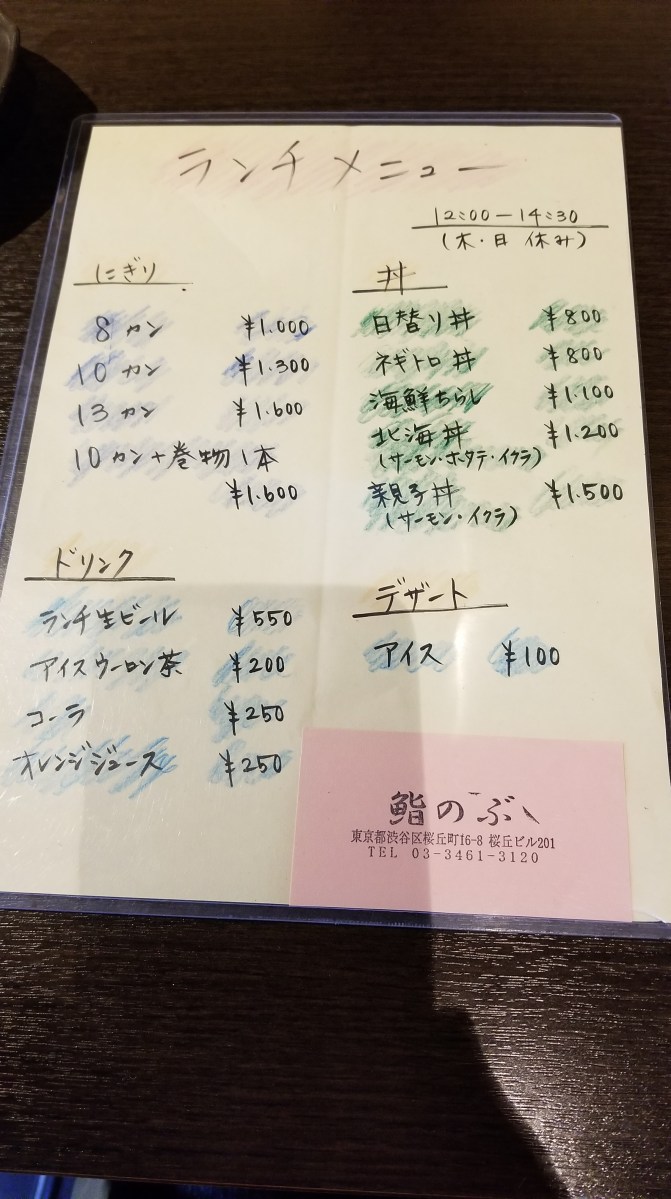 ランチメニュー
12:00-14:30
(木・日 休み)
にぎり
8カン ¥1.000
10カン ¥1.300
13カン ¥1.600
10カン+巻物1本
¥1.600
丼
日替り丼 ¥800
ネギトロ丼 ¥800
海鮮ちらし ¥1.100
北海丼 ¥1.200
(サーモン・ホタテ・イクラ)
親子丼 ¥1.500
(サーモン・イクラ)
ドリンク
ランチ生ビール ¥550
アイスウーロン茶 ¥200
コーラ ¥250
オレンジジュース ¥250
デザート
アイス ¥100
鮨のぶ
東京都渋谷区桜丘町16-8 桜丘ビル201
TEL 03-3461-3120